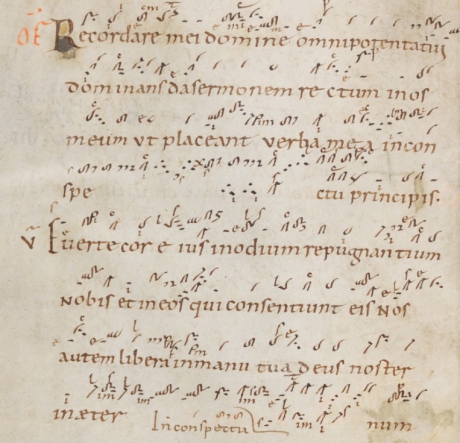 OF Recordare mei domine omnipotentatui
dominans da sermonem rectum in os
meum ut placeant verba mea in con
spe ctu principis.
V Everte cor eius in odium repugnantium
nobis et in eos qui consentiunt eis nos
autem libera in manu tua deus noster
in æter In conspectu num